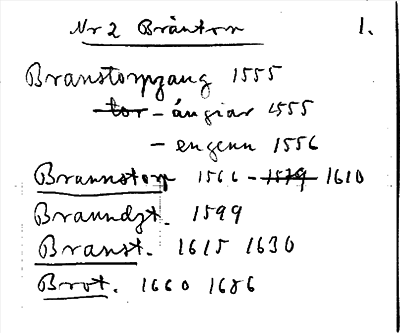 Nr 2 Bräntorp 1.
Branstorpzang 1555
tor - ängiar 1555
- engenn 1556
Brannstorp 1566 - 1579 1610
Braundzt. 1599
Branst. 1615 1630
Brot. 1660 1686